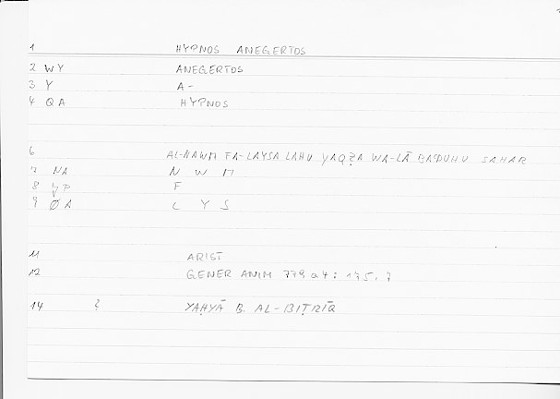 1 HYPNOS ANEGERTOS
2 WY ANEGERTOS
3 Y A-
4 QA HYPNOS
6 AL-NAWM FA-LAYSA LAHU YAQẒA WA-LĀ SAHAR
7 NA N W M
8 F
9 ØA L Y S
11 ARIST
12 GENER ANIM 779 a 4 : 175.7
14 YAḤYĀ B. AL-BIṬRĪQ